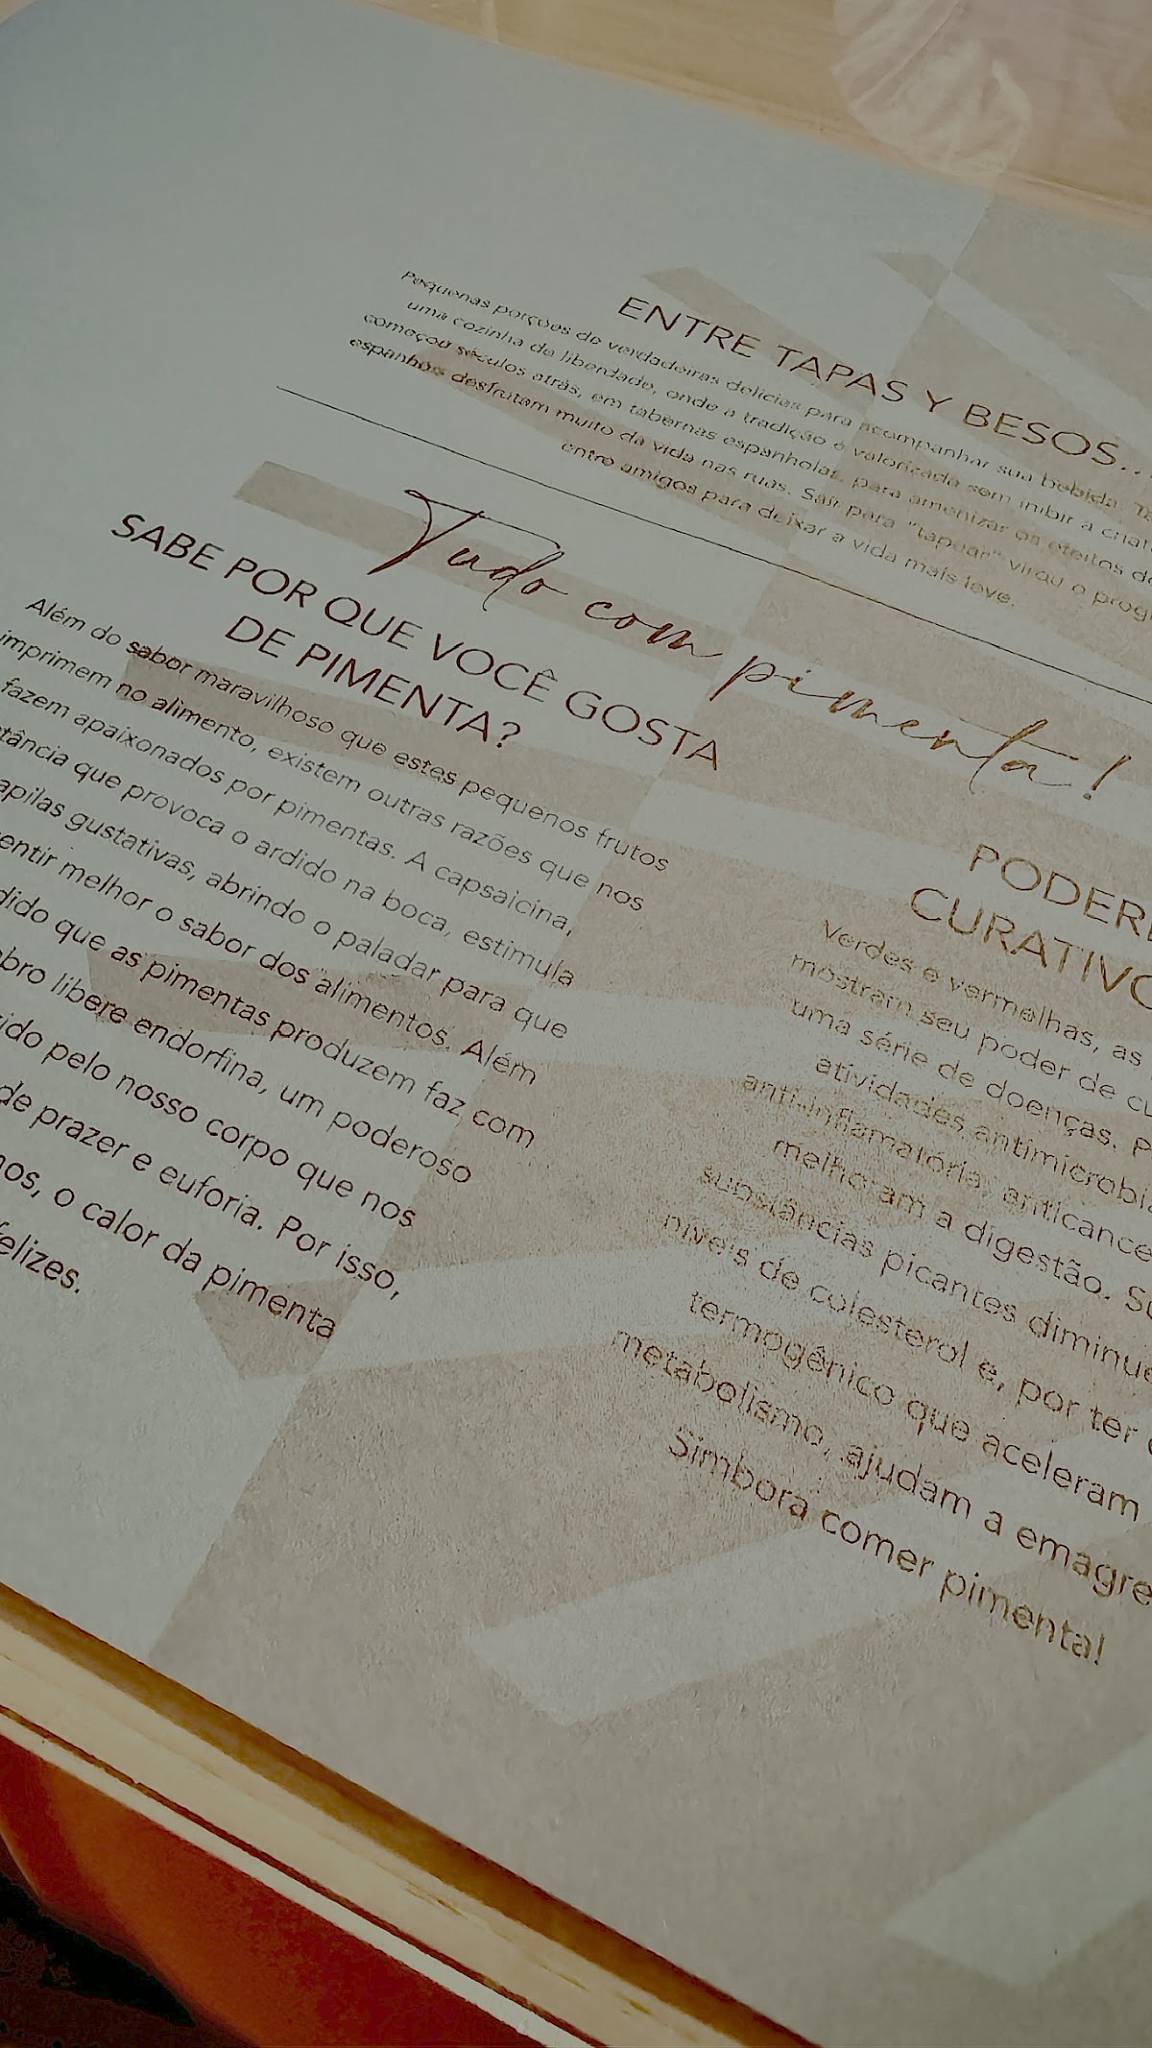 ENTRE TAPAS Y BESOS...
Pequenas porções de verdadeiras delícias para acompanhar sua bebida.
uma cozinha de liberdade, onde a tradição é valorizada sem inibir a
começou séculos atrás, em tabernas espanholas, para amenizar os efeitos
espanhóis desfrutam muito da vida nas ruas. Sair para "tapear" virou o
entre amigos para deixar a vida mais leve.
Tudo com pimenta!
SABE POR QUE VOCÊ GOSTA
DE PIMENTA?
Além do sabor maravilhoso que estes pequenos frutos
imprimem no alimento, existem outras razões que nos
fazem apaixonados por pimentas. A capsaicina,
que provoca o ardido na boca, estimula
gustativas, abrindo o paladar para que
melhor o sabor dos alimentos. Além
que as pimentas produzem faz com
libere endorfina, um poderoso
pelo nosso corpo que nos
de prazer e euforia. Por isso,
o calor da pimenta
felizes.
PODER
CURATIVO
Verdes e vermelhas, as
mostram seu poder de
uma série de doenças.
atividades
anti-inflamatória,
melhoram a digestão.
substâncias picantes
níveis de colesterol e, por ter
termogênico que aceleram
metabolismo, ajudam a
Simbora comer pimenta!